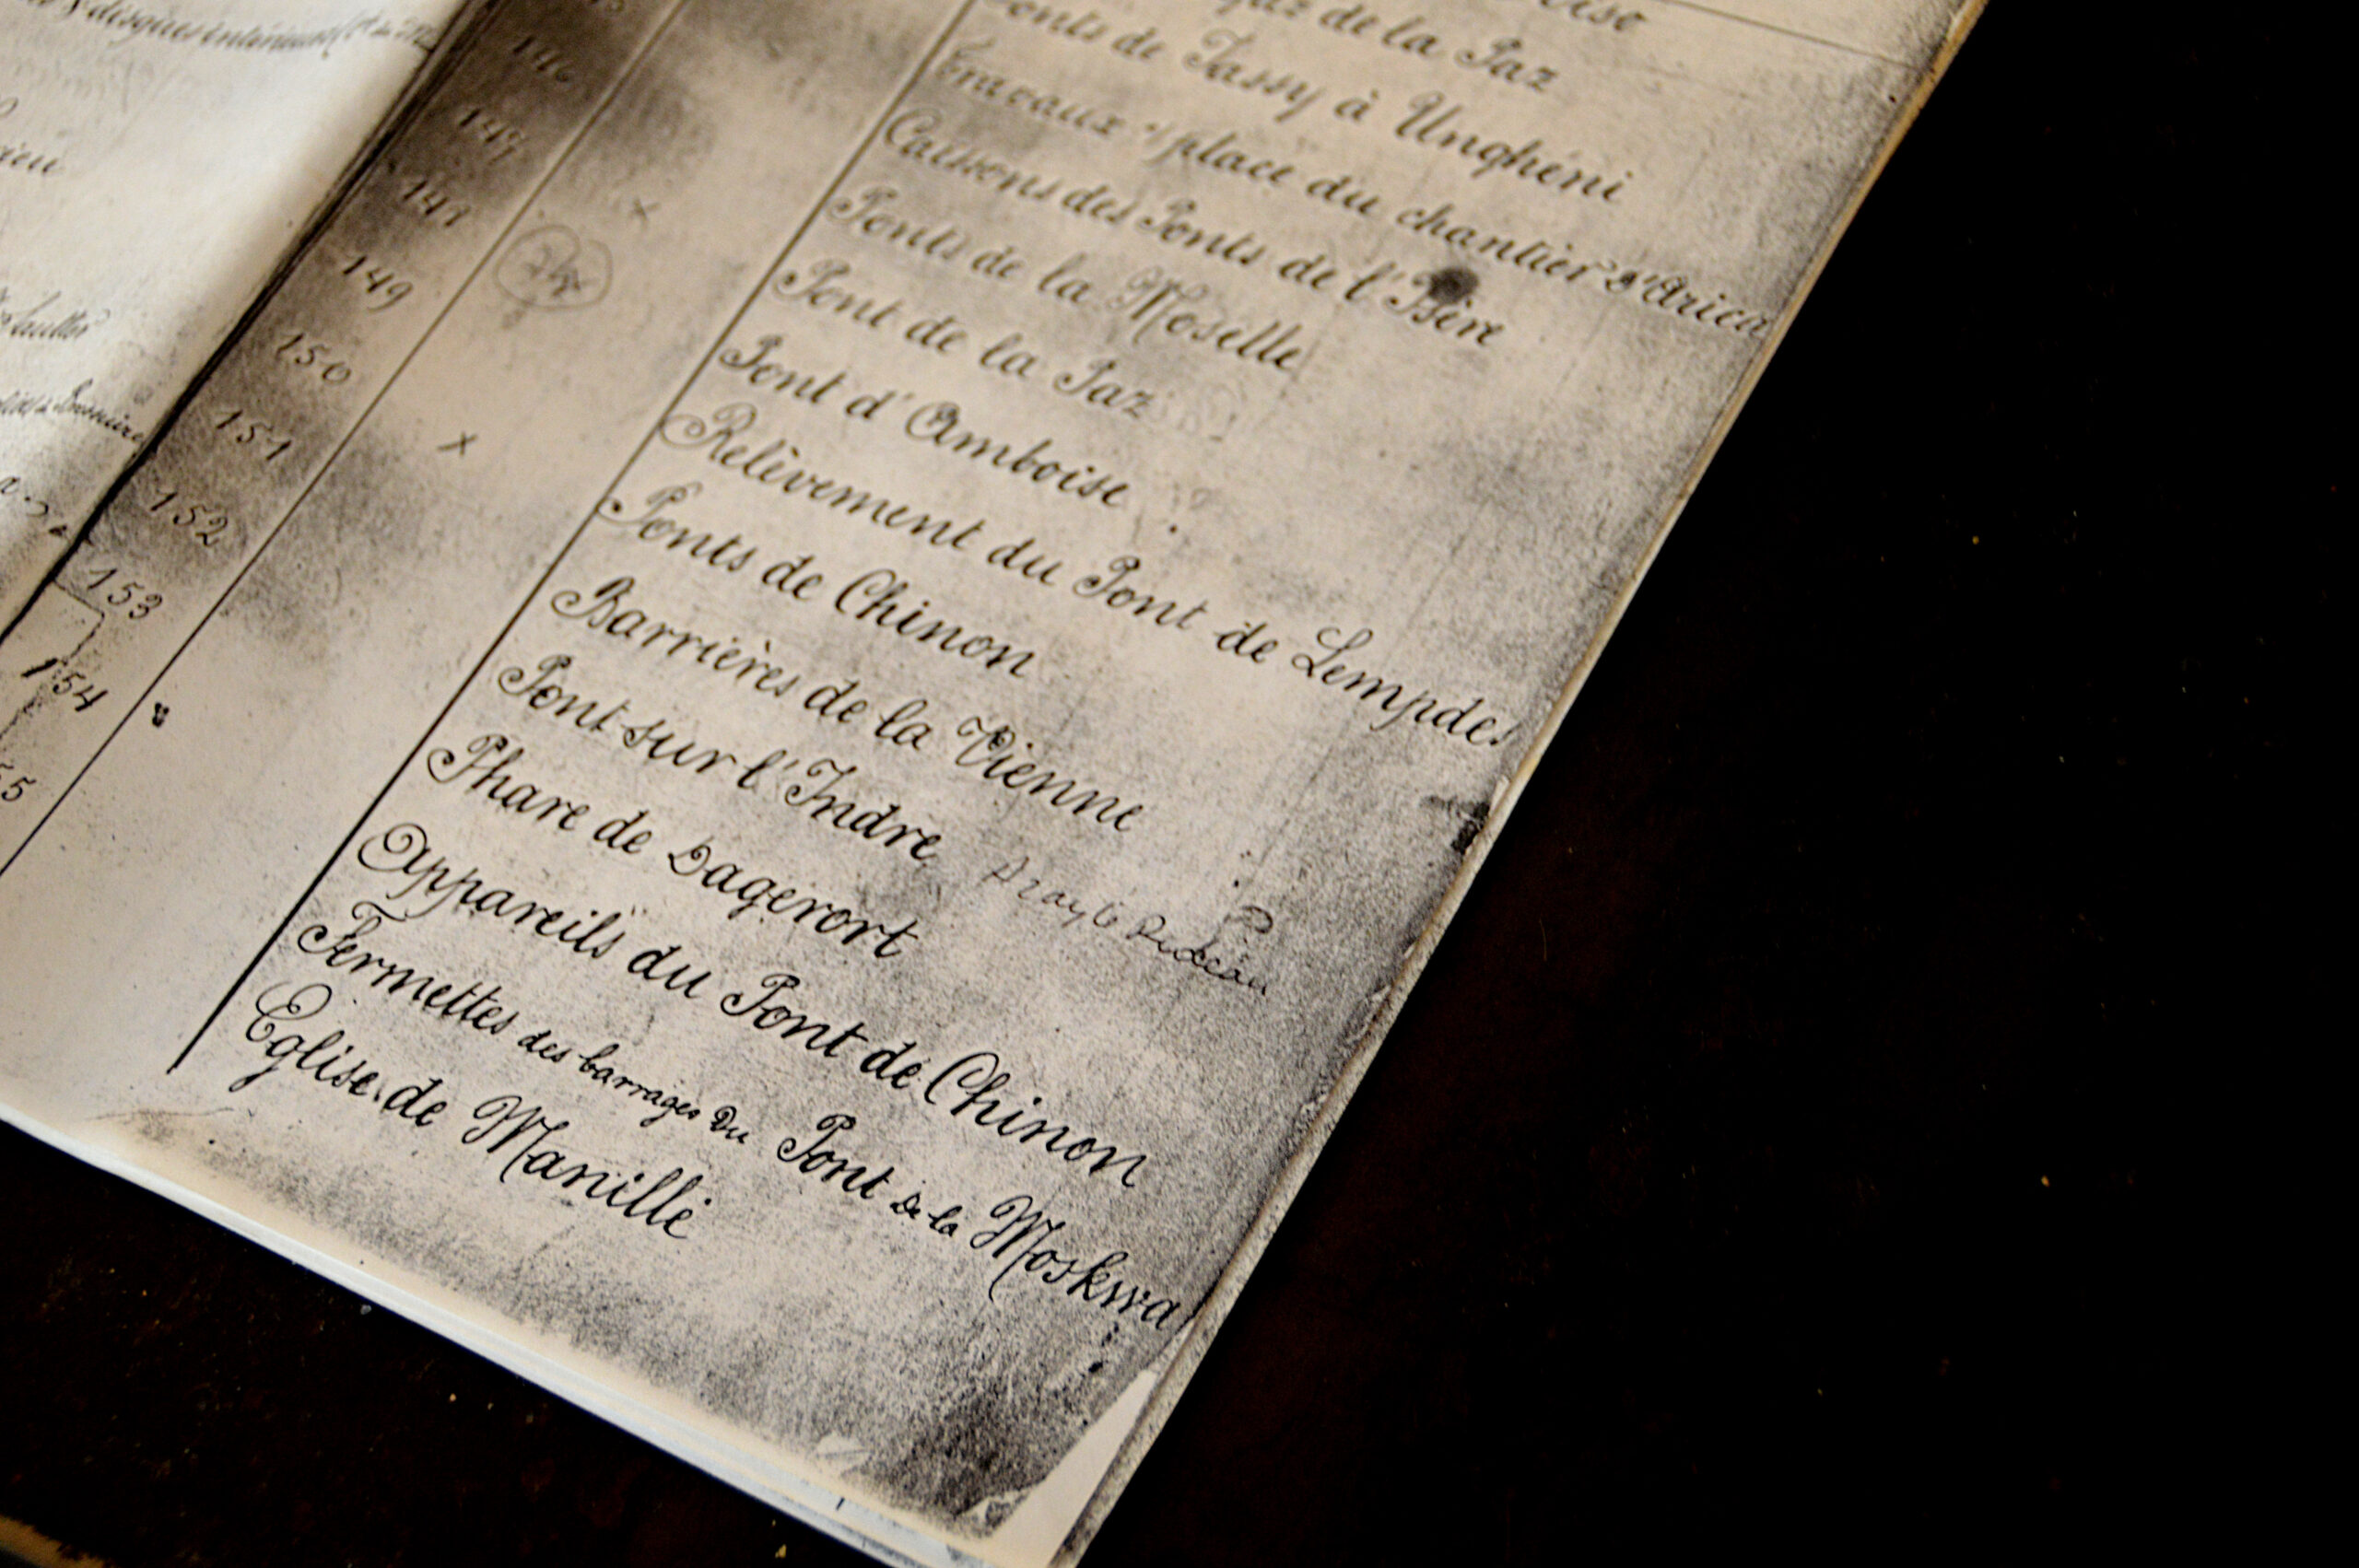 disques intérieurs
de la Paz
Ponts de Jassy à Ungheni
146 Travaux s/place du chantier d'Arica
147 Caissons des Ponts de l'Isère
148 x Ponts de la Moselle
149 Pont de la Paz
150 Pont d'Amboise
151 Relèvement du Pont de Lempdes
152 x Ponts de Chinon
153 Barrières de la Vienne
154 Pont sur l'Indre Azay le Rideau
55 Phare de Dagerort
Appareils du Pont de Chinon
Fermettes des barrages du Pont de la Moskwa
Eglise de Manille